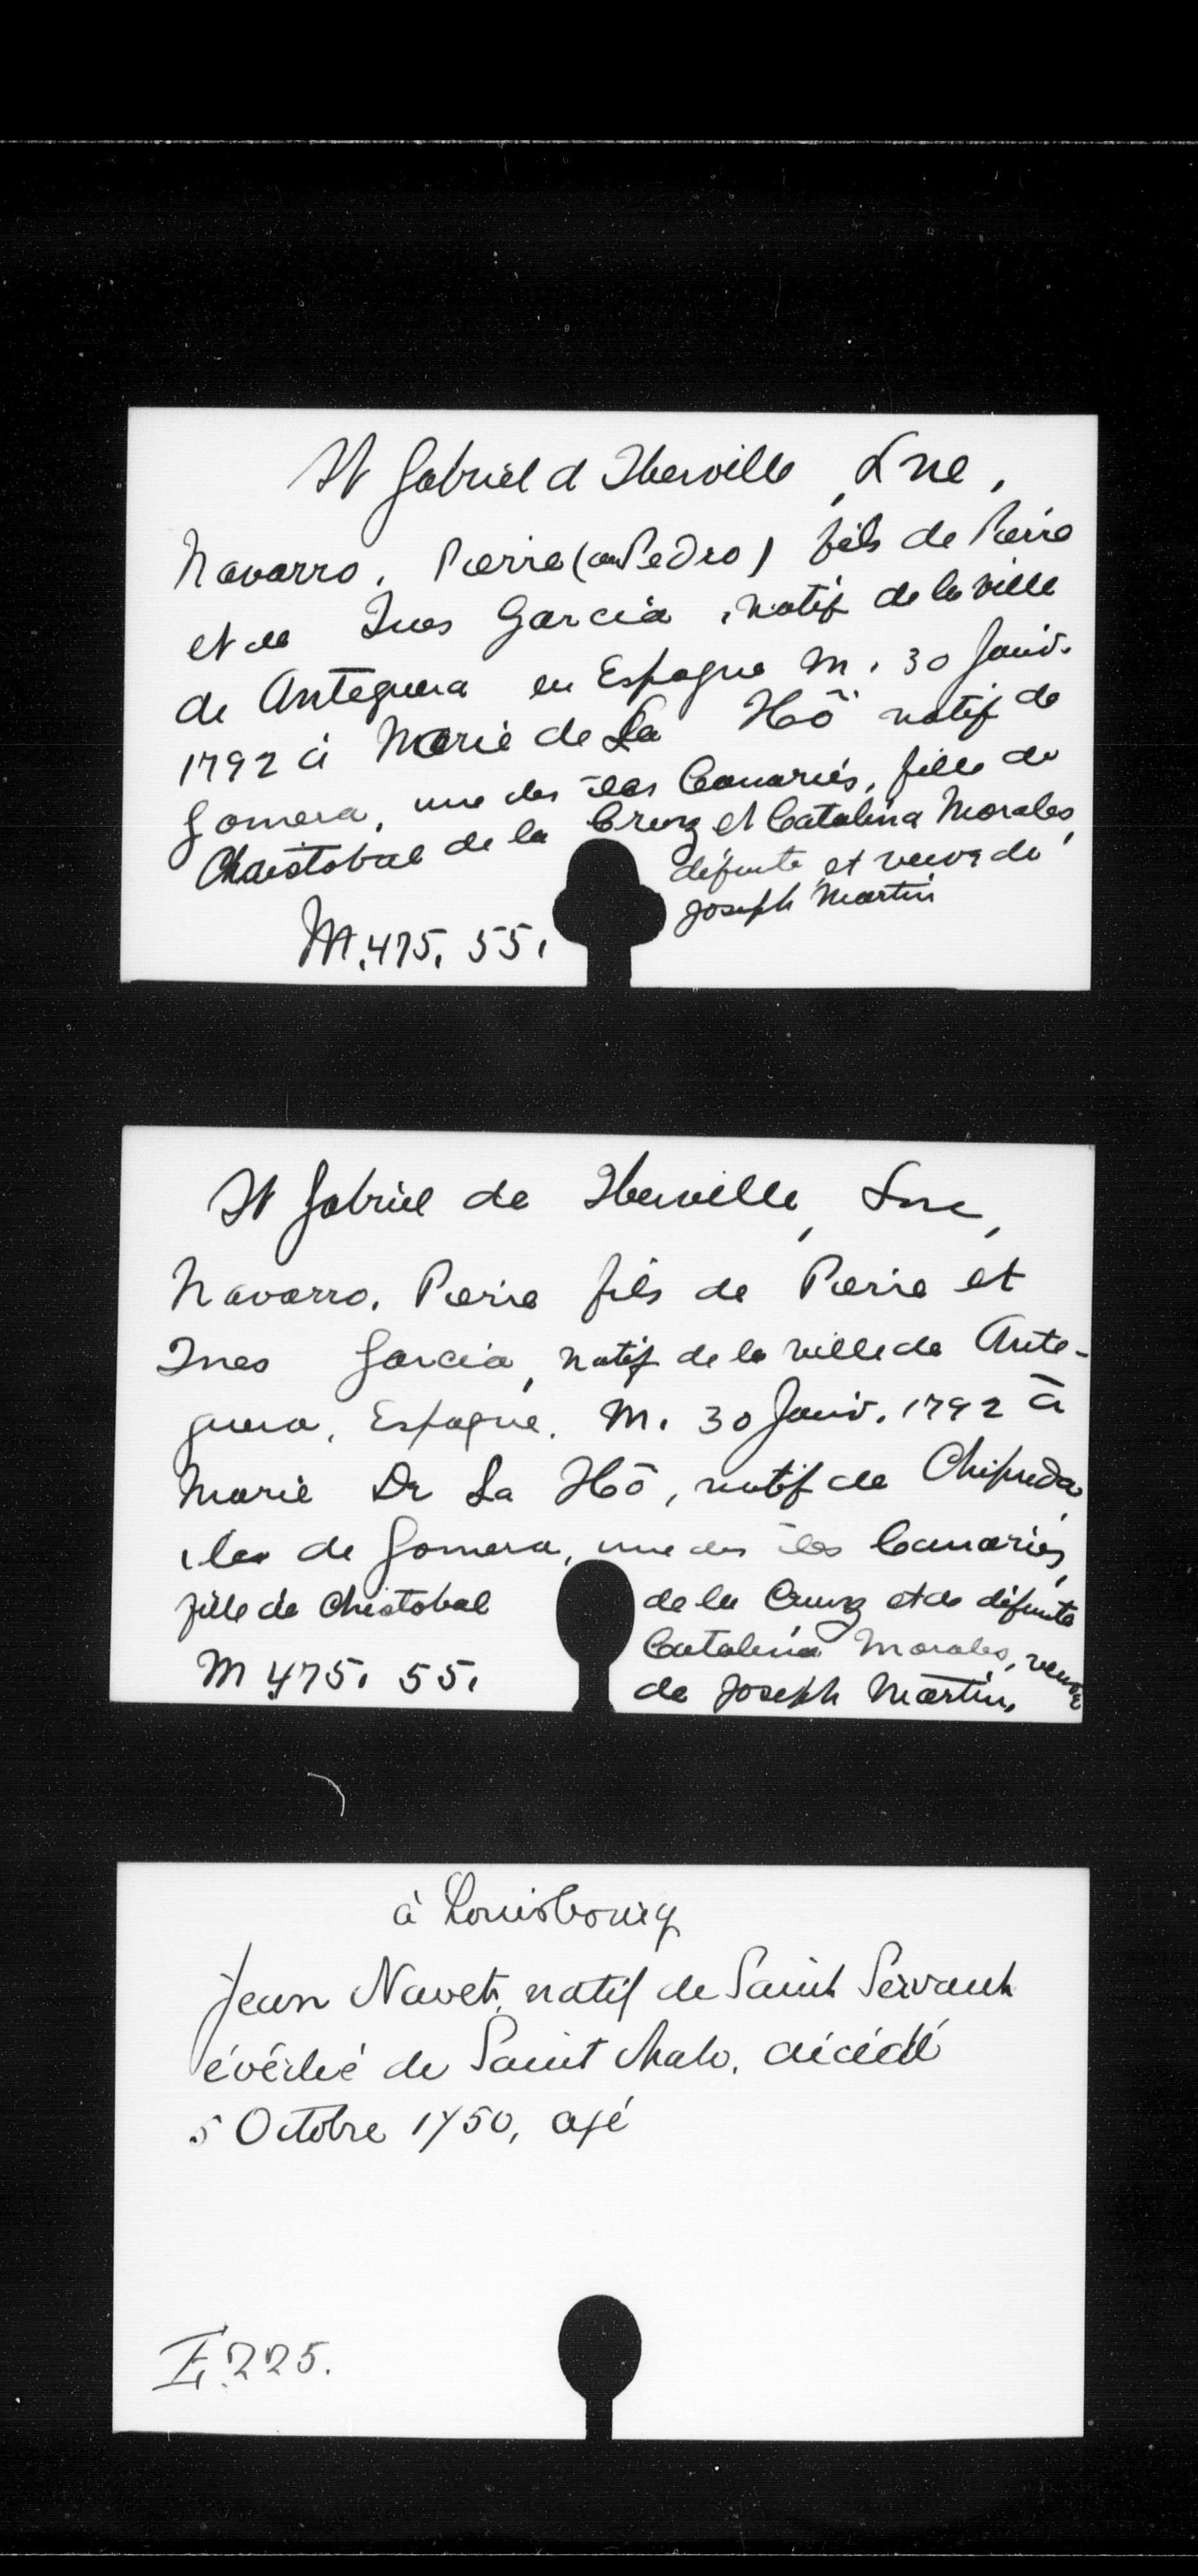 St Gabriel d Iberville, Lne,
Navarro, Pierre (ou Pedro) fils de Pierre
et de Ines Garcia, natif de la ville
de Antequera en Espagne m. 30 Janv.
1792 à Marie de La Hō natif de
Gomera, une des îles Canaries, fille de
Christobal de la Cruz et Catalina Morales,
défunte et veuve de
Joseph Martin
M. 475. 55.
St Gabriel de Iberville, Lne,
Navarro. Pierre fils de Pierre et
Ines Garcia, natif de la ville de Ante-
quera, Espagne. M. 30 Janv. 1792 à
Marie De La Hō, natif de Chipuda,
iles de Gomera, une des îles Canaries,
fille de Christobal de la Cruz et de défunte
Catalina Morales, veuve
M 475. 55. de Joseph Martin.
à Louisbourg
Jean Navet, natif de Saint Servant
évêché de Saint Malo, décédé
5 Octobre 1750, agé
E. 225.